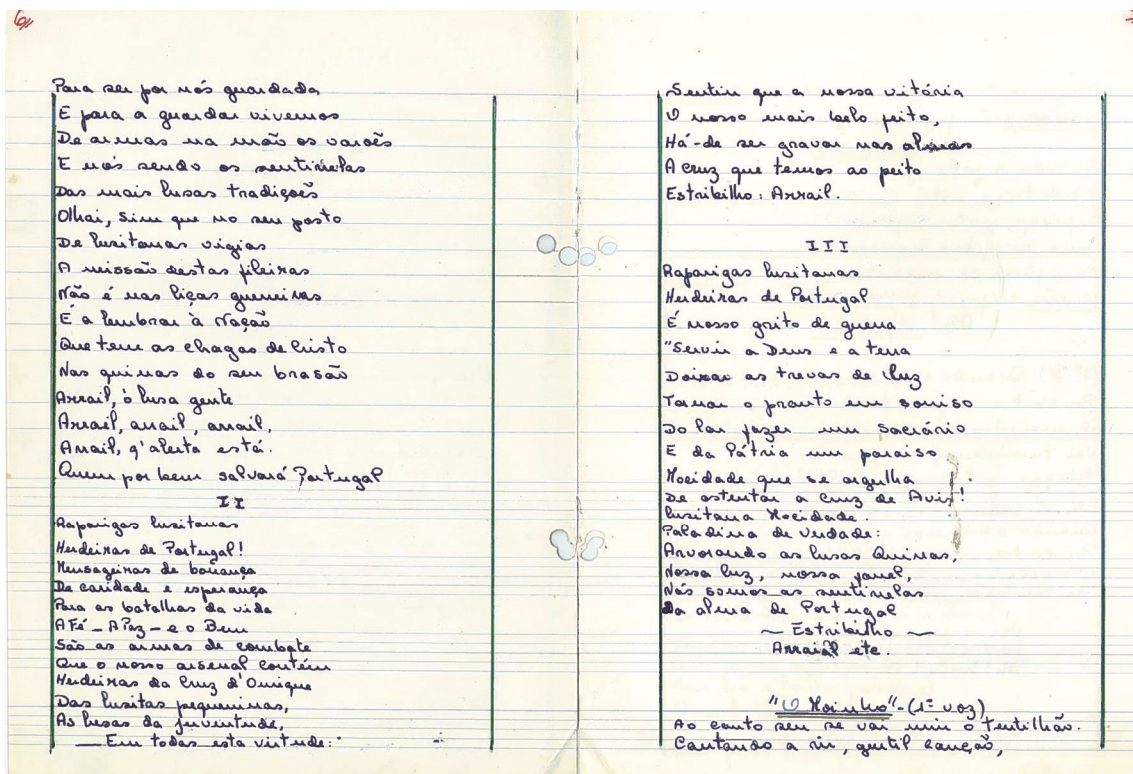 6//
Para ser por nós guardada
E para a guardar vivemos
De armas na mão os varões
E nós sendo os sentinelas
Das mais lusas tradições
Olhai, sim que no seu posto
De lusitanas vigias
A missão destas fileiras
Não é nas liças guerreiras
E a lembrar à Nação
Que tem as chagas de Cristo
Nas quinas do seu brasão
Arrail, ò lusa gente
Arrail, arrail, arrail,
Arrail, q'alerta está.
Quem por bem salvará Portugal
II
Raparigas lusitanas
Herdeiras de Portugal!
Mensageiras de bonança
De caridade e esperança
Para as batalhas da vida
A Fé - A Paz - e o Bem
São as armas de combate
Que o nosso arsenal contém
Herdeiras da Cruz d'Ourique
Das lusitas pequeninas,
As lusas da juventude,
— Em todas esta virtude:
Sentir que a nossa vitória
O nosso mais belo feito,
Há-de ser gravar nas almas
A cruz que temos ao peito
Estribilho: Arrail.
III
Raparigas lusitanas
Herdeiras de Portugal
É nosso grito de guerra
"Servir a Deus e a terra
Doirar as trevas de luz
Tornar o pranto em sorriso
Do lar fazer um sacrário
E da Pátria um paraiso
Mocidade que se orgulha
De ostentar a Cruz de Avis!
Lusitana Mocidade.
Paladina de verdade:
Arvorando as lusas Quinas,
Nossa luz, nosso fanel,
Nós somos as sentinelas
Da alma de Portugal
~ Estribilho ~
Arraial etc.
"O Moinho" - (1ª voz)
Ao canto seu se vai unir o tentilhão.
Cantando a rir, gentil canção,